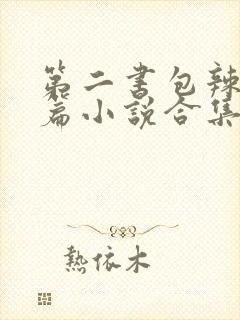 第二书包辣
篇小说合集
熱依木